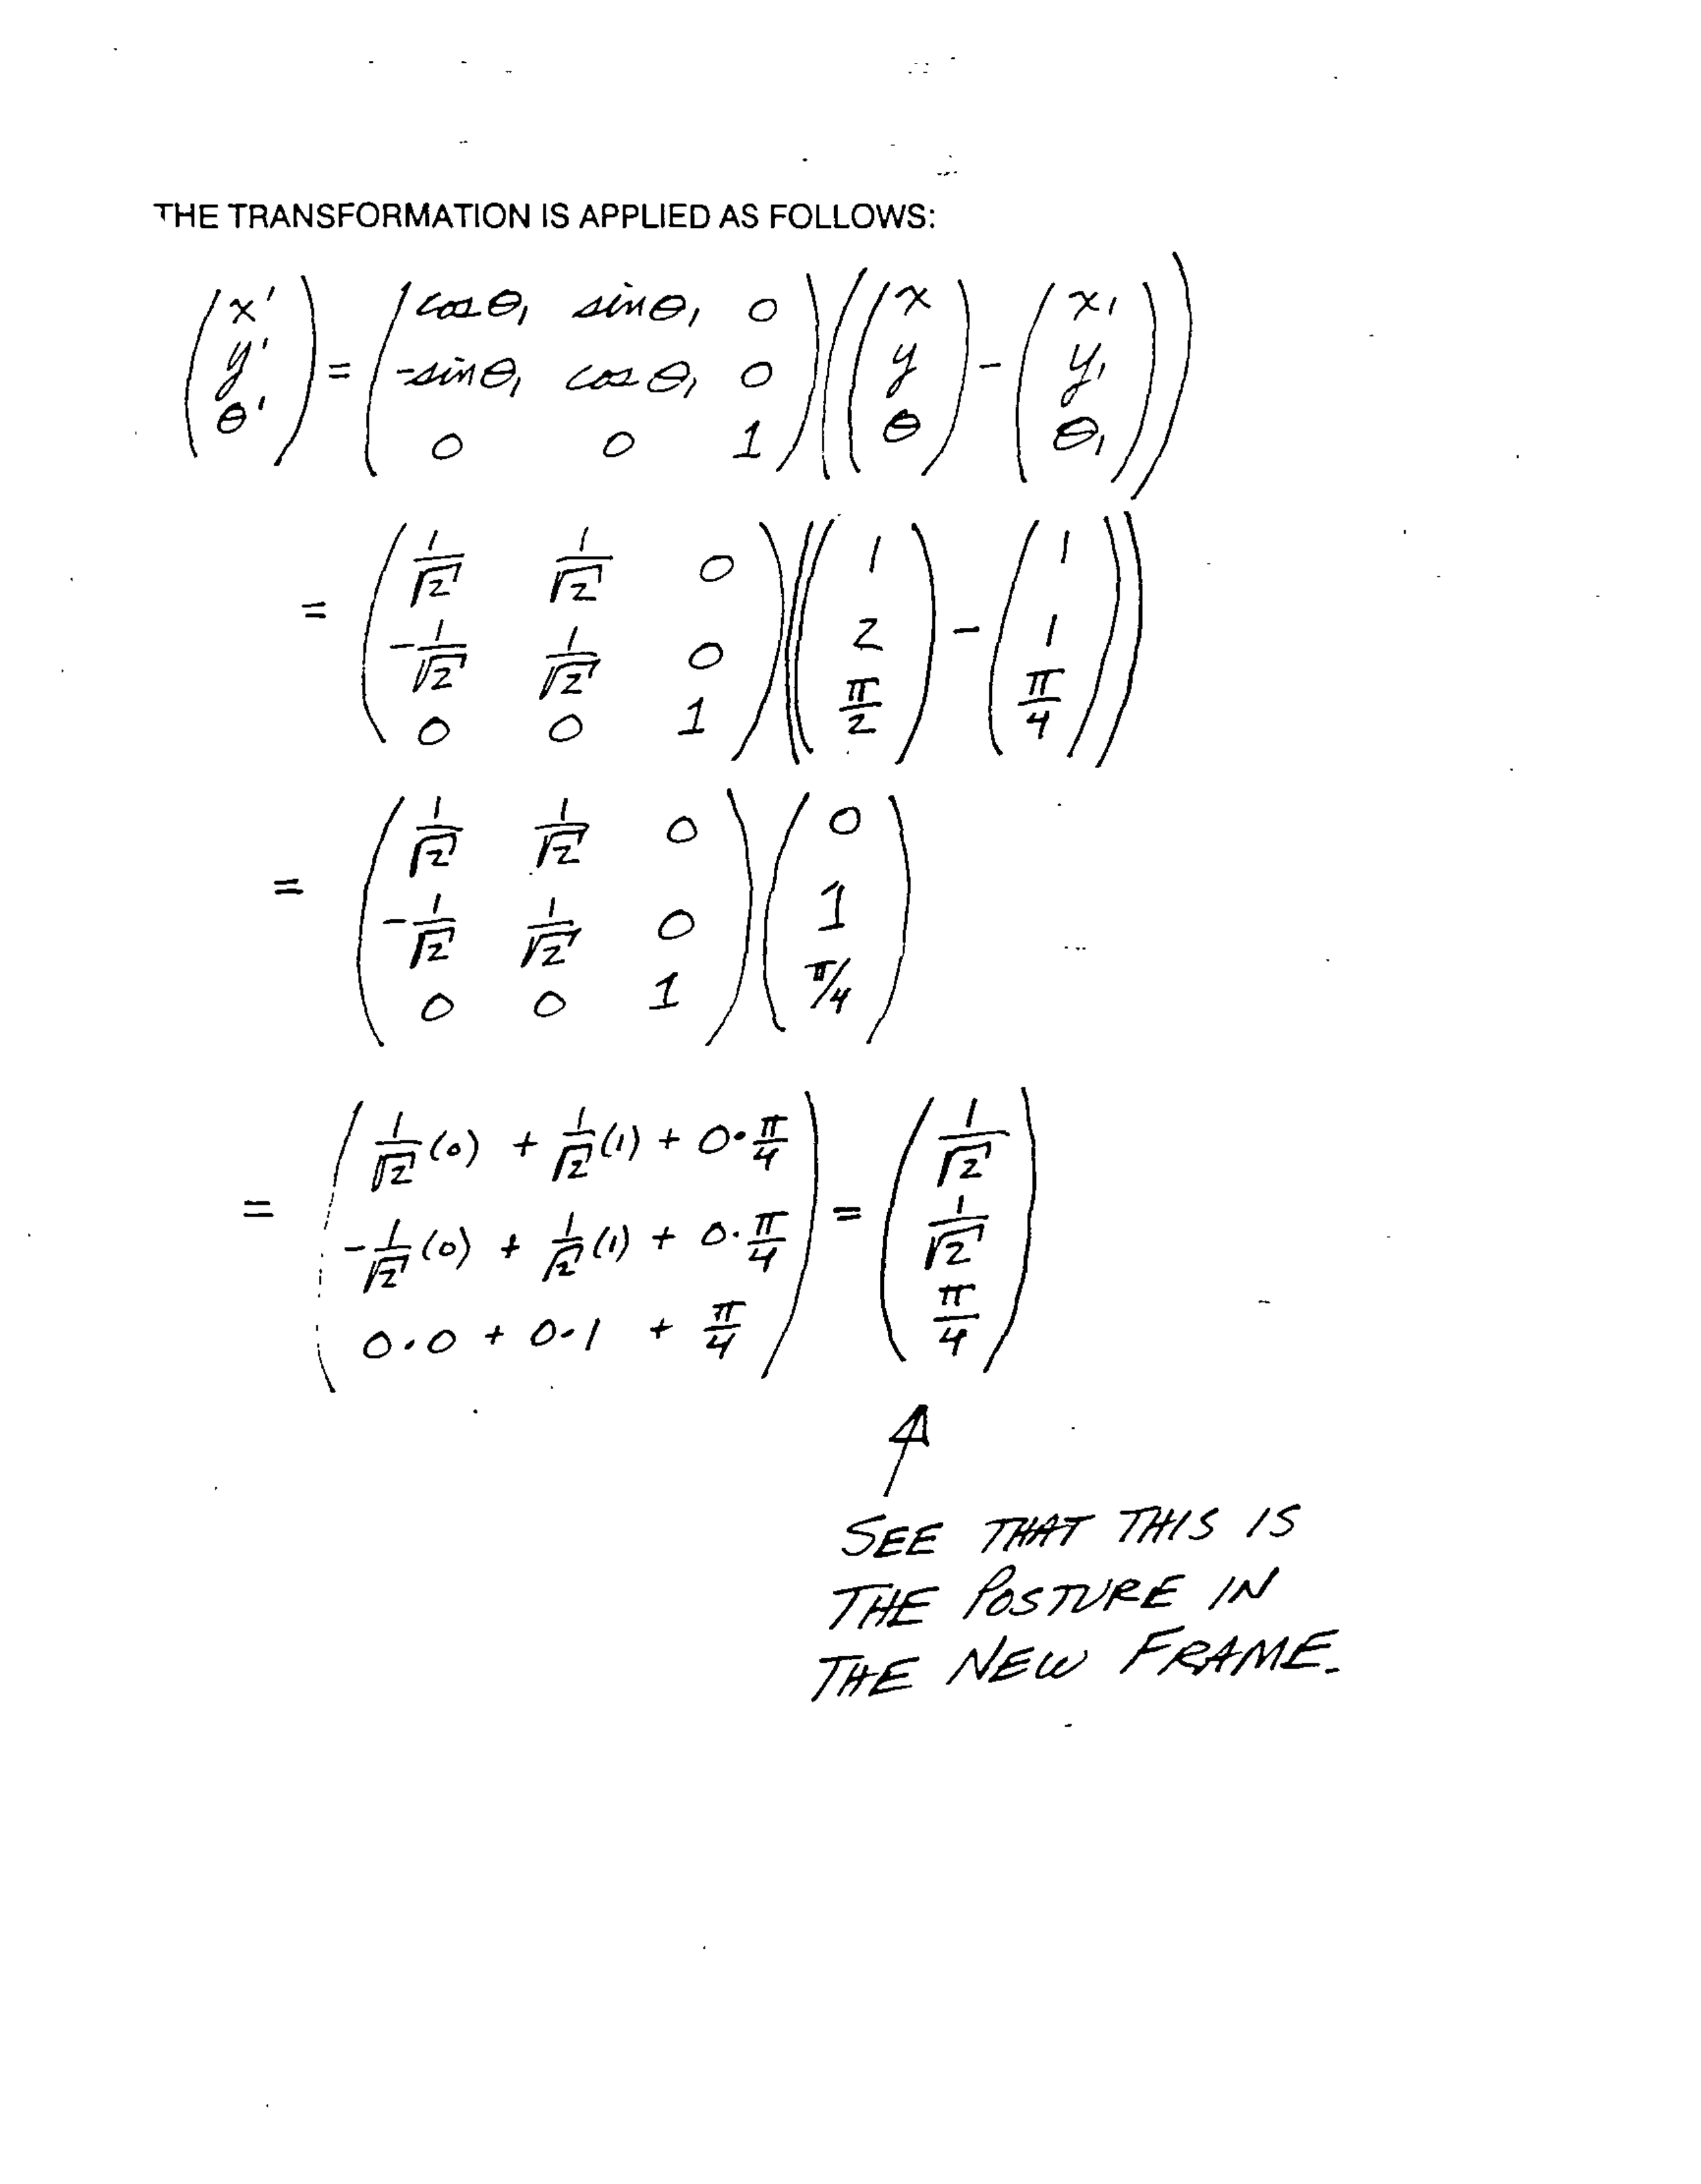 THE TRANSFORMATION IS APPLIED AS FOLLOWS:
(x' y' θ') = (cosθ₁ sinθ₁ 0; -sinθ₁ cosθ₁ 0; 0 0 1)((x y θ) - (x₁ y₁ θ₁))
= (1/√2 1/√2 0; -1/√2 1/√2 0; 0 0 1)((1 2 π/2) - (1 1 π/4))
= (1/√2 1/√2 0; -1/√2 1/√2 0; 0 0 1)(0 1 π/4)
= (1/√2(0) + 1/√2(1) + 0·π/4; -1/√2(0) + 1/√2(1) + 0·π/4; 0·0 + 0·1 + π/4) = (1/√2 1/√2 π/4)
SEE THAT THIS IS
THE POSTURE IN
THE NEW FRAME.